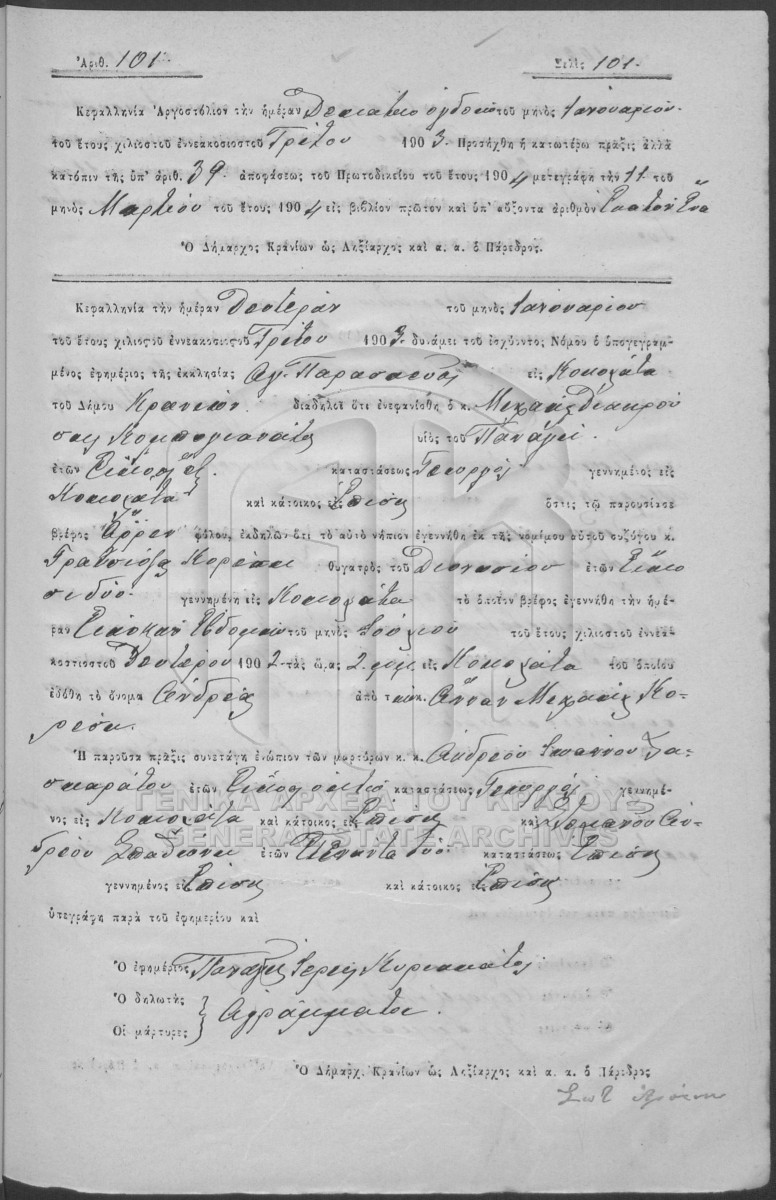 Ἀριθ. 101.
Σελὶς 101.
Κεφαλληνία Ἀργοστόλιον τὴν ἡμέραν Δεκάτην ὀγδόην τοῦ μηνὸς Ἰανουαρίου
τοῦ ἔτους χιλιοστοῦ ἐννεακοσιοστοῦ Τρίτου 1903. Προσήχθη ἡ κατωτέρω πρᾶξις ἀλλὰ
κατόπιν τῆς ὑπ' ἀριθ. 39. ἀποφάσεως τοῦ Πρωτοδικείου τοῦ ἔτους 1904 μετεγράφη τὴν 11 τοῦ
μηνὸς Μαρτίου τοῦ ἔτους 1904 εἰς βιβλίον πρῶτον καὶ ὑπ' αὔξοντα ἀριθμὸν Ἑκατὸν Ἕνα
Ὁ Δήμαρχος Κρανίων ὡς Ληξίαρχος καὶ α. α. ὁ Πάρεδρος.
Κεφαλληνία τὴν ἡμέραν Δευτέραν τοῦ μηνὸς Ἰανουαρίου
τοῦ ἔτους χιλιοστοῦ ἐννεακοσιοστοῦ Τρίτου 1903. δυνάμει τοῦ ἰσχύοντος Νόμου ὁ ὑπογεγραμ-
μένος ἐφημέριος τῆς ἐκκλησίας Αγ. Παρασκευῆς εἰς Κοκολάτα
τοῦ Δήμου Κρανίων διαδηλοῖ ὅτι ἐνεφανίσθη ὁ κ. Μιχαὴλ
υἱὸς τοῦ Παναγῆ.
ἐτῶν Εἴκοσι ἓξ. καταστάσεως Γεωργὸς γεννημένος εἰς
Κοκολάτα καὶ κάτοικος εἰς Ἐπίσης ὅστις τῷ παρουσίασε
βρέφος ἄρρεν φύλου, ἐκδηλῶν ὅτι τὸ αὐτὸ νήπιον ἐγεννήθη ἐκ τῆς νομίμου αὐτοῦ συζύγου κ.
θυγατρὸς τοῦ Διονυσίου ἐτῶν Εἴκο
σι δύο. γεννημένη εἰς Κοκολάτα τὸ ὁποῖον βρέφος ἐγεννήθη τὴν ἡμέ-
ραν Εἰκοστὴν Ἑβδόμην τοῦ μηνὸς Ἰουλίου τοῦ ἔτους χιλιοστοῦ ἐννεα-
κοσιοστοῦ Δευτέρου 1902 τὰς ὥρας 2. μμ. εἰς Κοκολάτα τοῦ ὁποίου
ἐδόθη τὸ ὄνομα Ἀνδρέας ἀπὸ τὴν κ. Ἄνναν Μιχαὴλ Κο-
ρέση.
Ἡ παροῦσα πρᾶξις συνετάγη ἐνώπιον τῶν μαρτύρων κ. κ. Ἀνδρέου Ἰωάννου Λα-
σκαράτου ἐτῶν Εἴκοσι ὀκτὼ καταστάσεως Γεωργὸς γεννημέ-
νος εἰς Κοκολάτα καὶ κάτοικος εἰς Ἐπίσης καὶ Γερμανοῦ Ἀν-
δρέου ἐτῶν Πενῆντα δύο καταστάσεως Ἐπίσης
γεννημένος εἰς Ἐπίσης καὶ κάτοικος εἰς Ἐπίσης
ὑπεγράφη παρὰ τοῦ ἐφημερίου καὶ
Ὁ ἐφημέριος Παναγῆς Ἱερεὺς Κυριακάτος
Ὁ δηλωτὴς
Ἀγράμματοι.
Οἱ μάρτυρες
Ὁ Δήμαρχ. Κρανίων ὡς Ληξίαρχος καὶ α. α. ὁ Πάρεδρος
ΓΕΝΙΚΑ ΑΡΧΕΙΑ ΤΟΥ ΚΡΑΤΟΥΣ
GENERAL STATE ARCHIVES